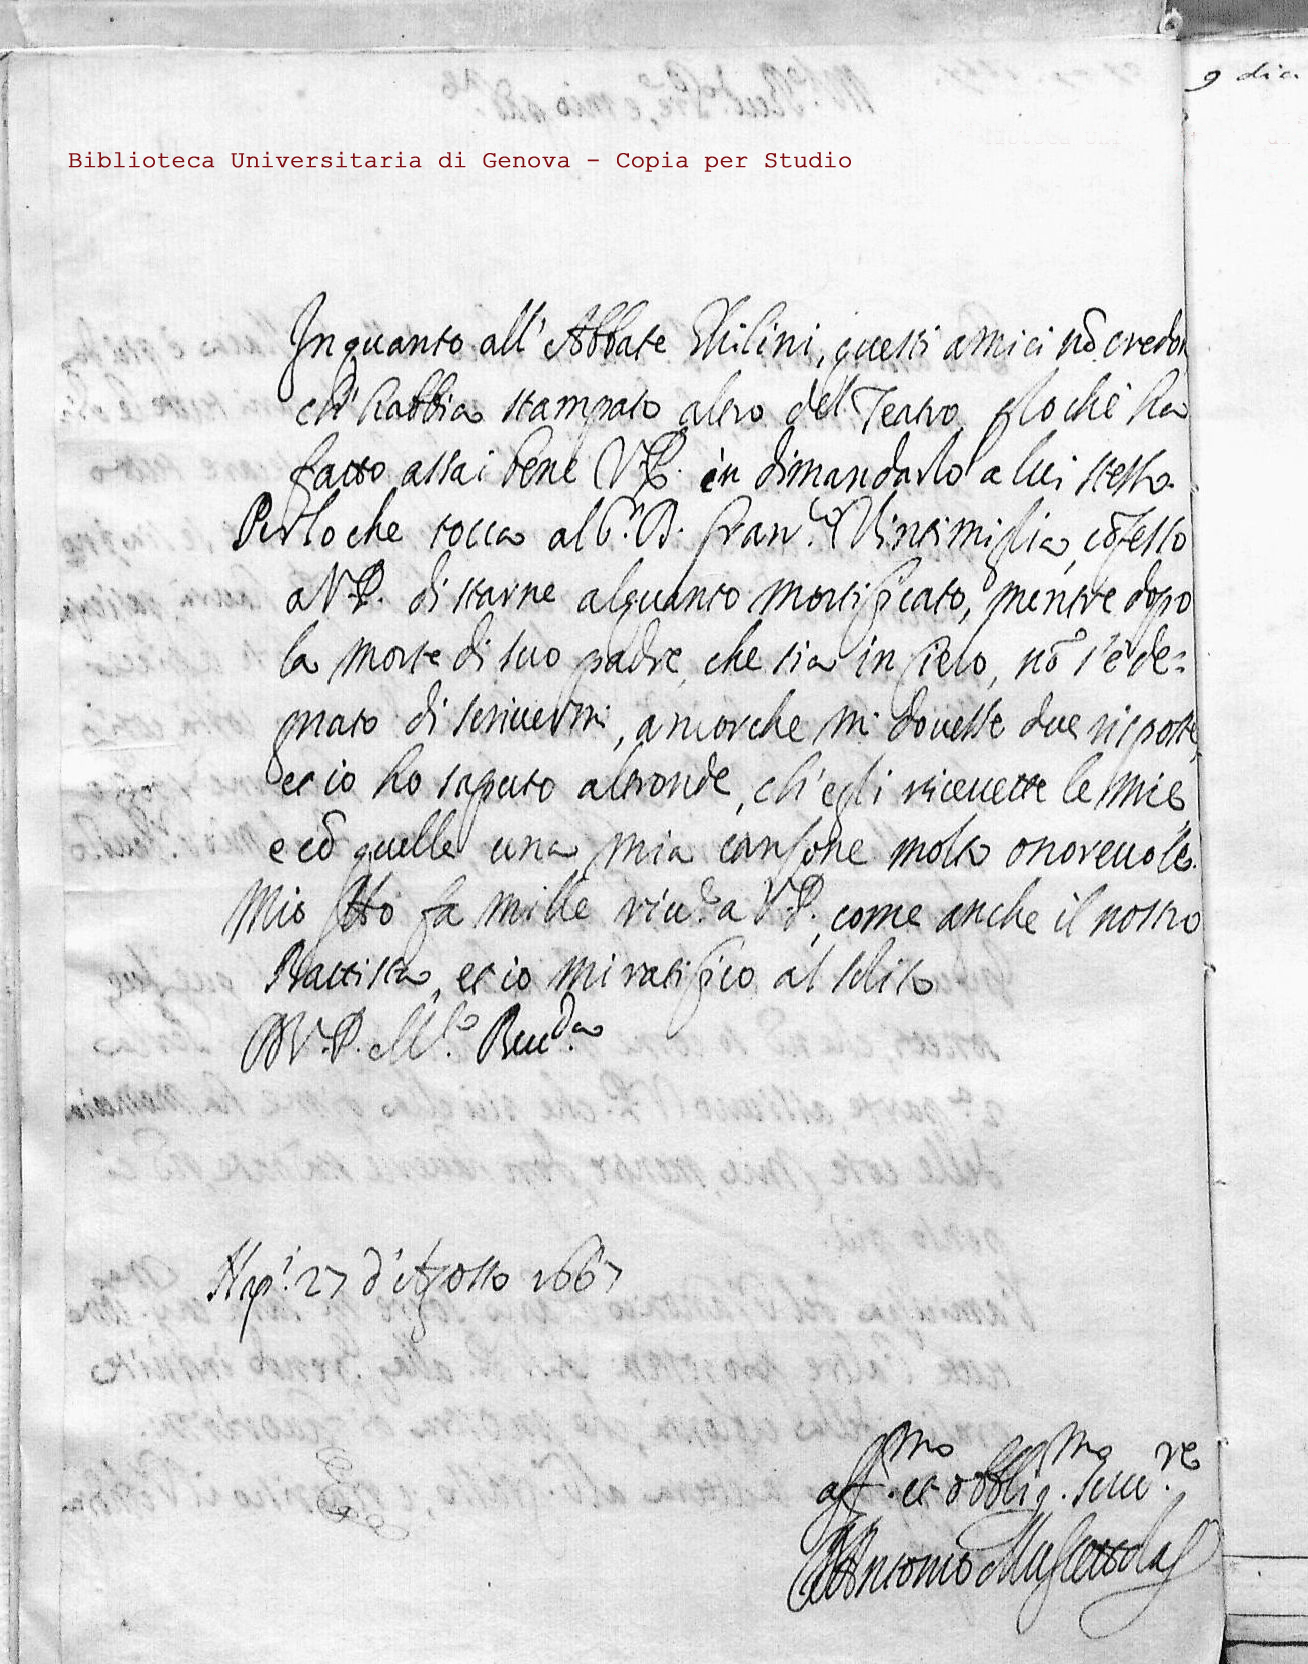 9 dia
Biblioteca Universitaria di Genova - Copia per Studio
In quanto all' Abbate Ghilini, questi amici nō credon
ch' habbia stampato altro del Teatro, ꝑloche ha
fatto assai bene V.P. in dimandarlo a lui stesso.
Perlo che tocca al S.r D. Fran.co Vintimiglia, cōfesso
a V.P. di starne alquanto mortificato, mentre dopo
la morte di suo padre, che sia in Cielo, nō s'è de=
gnato di scriuermi, ancorche mi douesse due risposte,
et io ho saputo altronde, ch' egli riceuette le mie,
e cō quelle una mia canzone molto onoreuole.
Mio f̃tto fa mille riu.e a V.P., come anche il nostro
Battista, et io mi ratifico al solito
D V.P. M.to Reu.da
Nap.i 27 d'Agosto 1667
aff.mo et obblig.mo seru.re
D. Antonio Muscettola